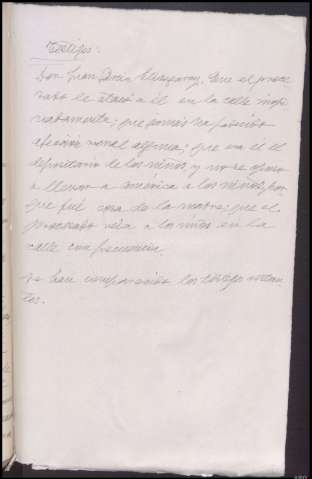 Testigos:
Don Juan García. Que el proce-
sado le atacó a él en la calle inopi-
nadamente; que jamás ha
moral alguna; que era él el
depositario de los niños, y no se opuso
a llevar a América a los niños, por-
que fué cosa de la madre; que el
procesado veía a los niños en la
calle con frecuencia.
No han comparecido los testigos restan-
tes.